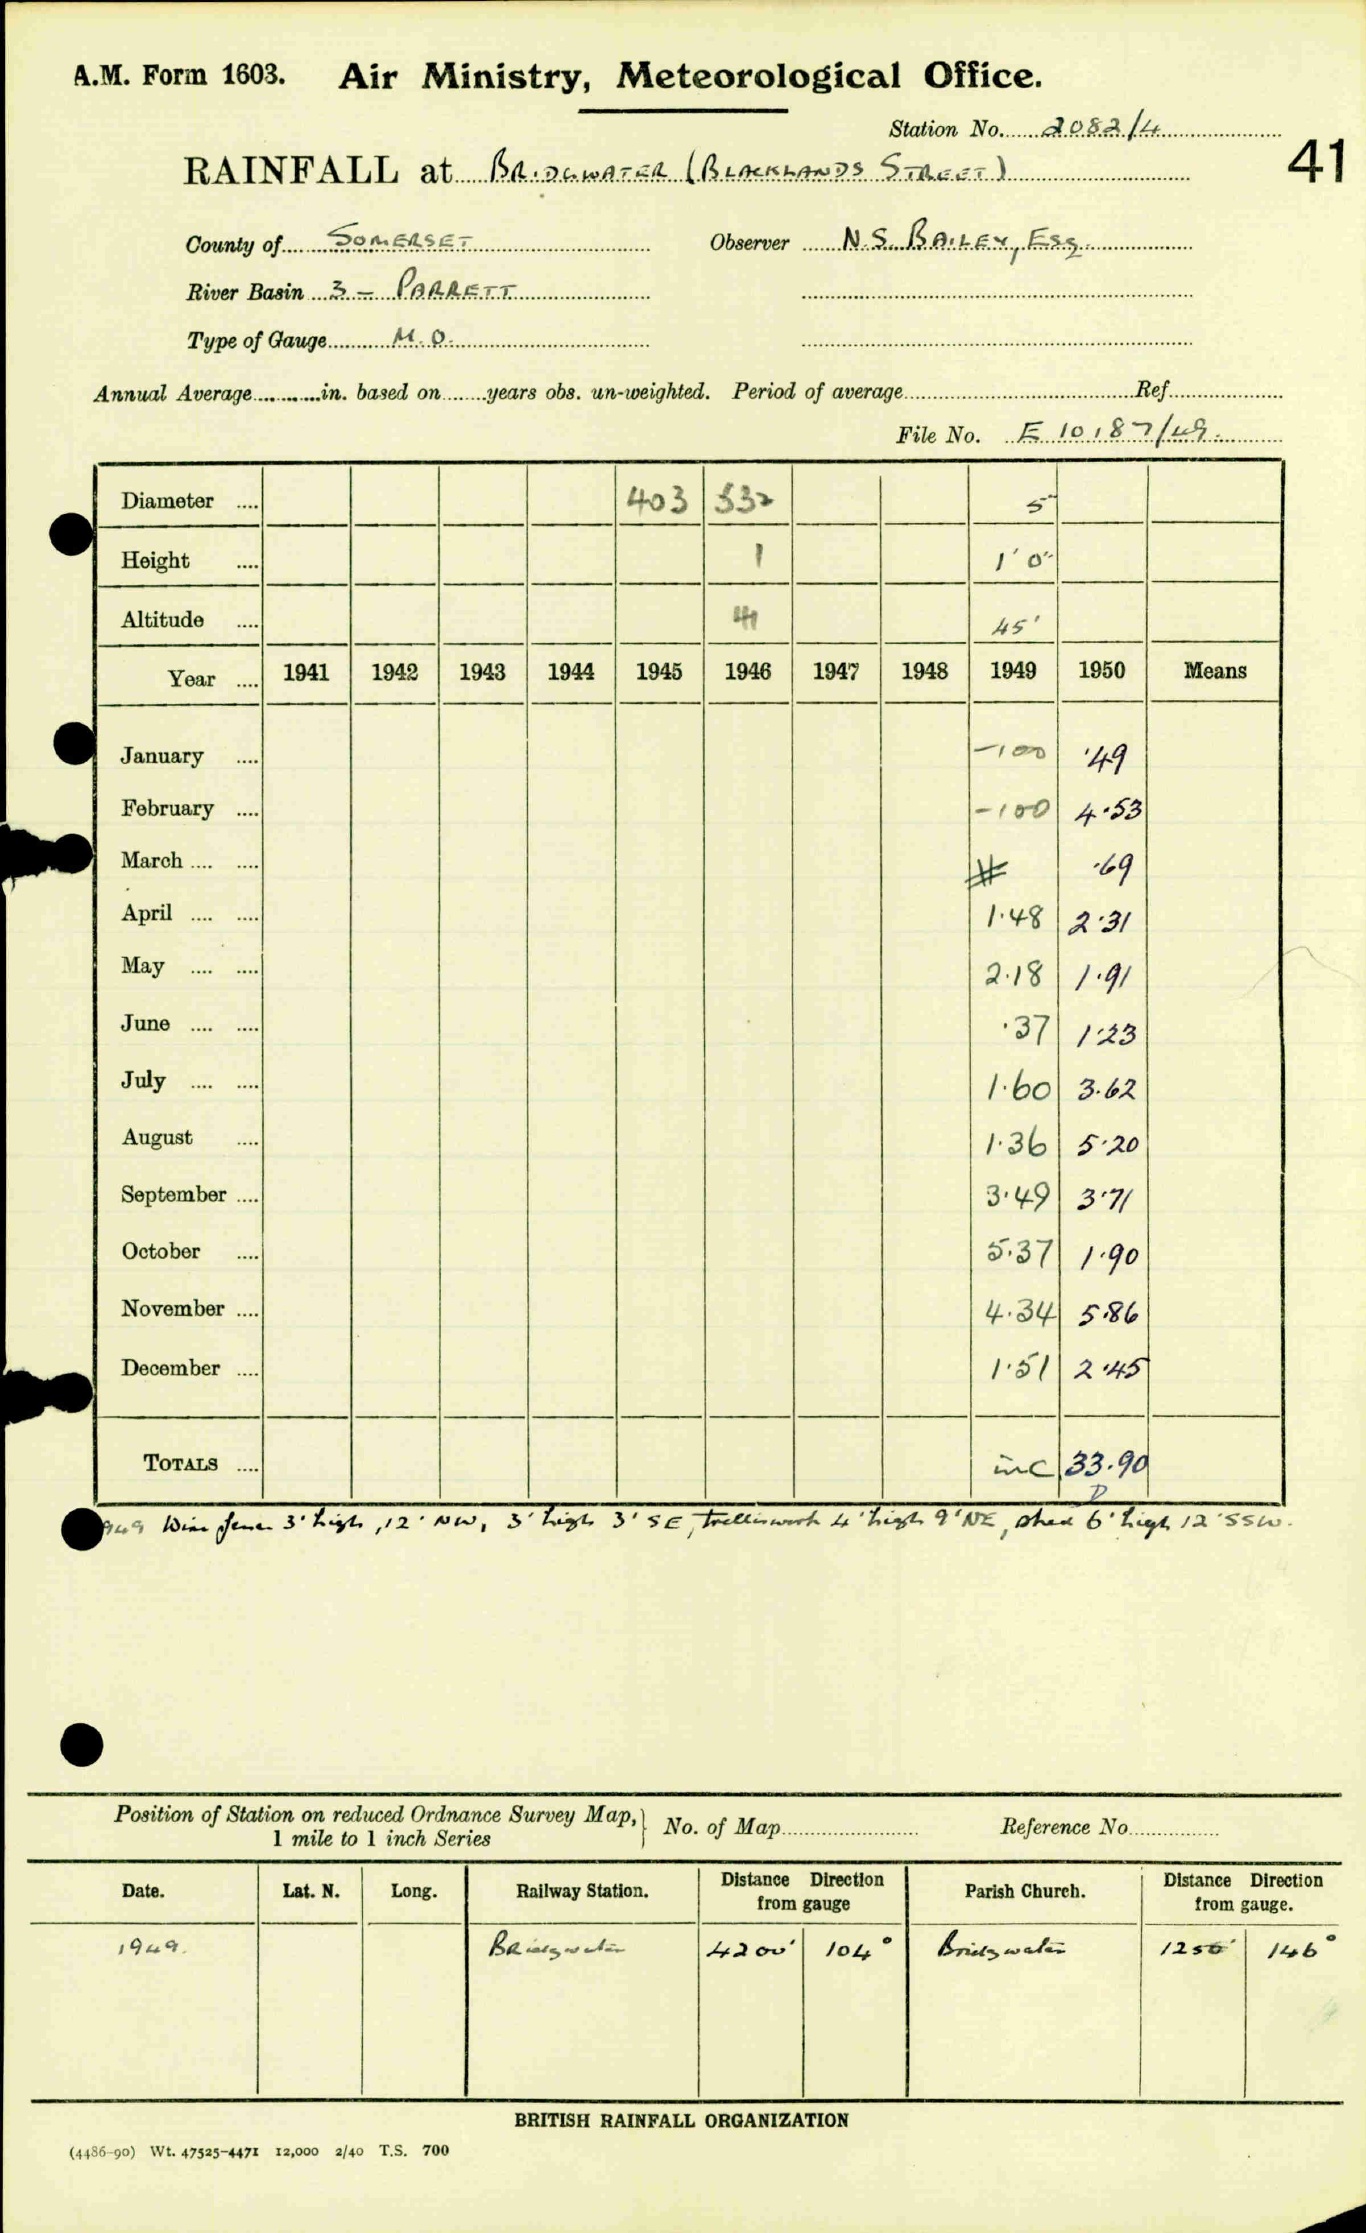 A.M. Form 1603. Air Ministry, Meteorological Office.
Station No. 2082/4
41
RAINFALL at BRIDGWATER (BLACKLANDS STREET)
County of SOMERSET Observer N.S. BAILEY, ESQ.
River Basin 3 — PARRETT
Type of Gauge M.O.
Annual Average in. based on years obs. un-weighted. Period of average Ref.
File No. E 10187/49.
Diameter 403 532 5"
Height 1 1' 0"
Altitude 41 45'
Year 1941 1942 1943 1944 1945 1946 1947 1948 1949 1950 Means
January -100 .49
February -100 4.53
March # .69
April 1.48 2.31
May 2.18 1.91
June .37 1.23
July 1.60 3.62
August 1.36 5.20
September 3.49 3.71
October 5.37 1.90
November 4.34 5.86
December 1.51 2.45
TOTALS inc 33.90
D
1949 Wire fence 3' high, 12' NW, 3' high 3' SE, trelliswork 4' high 9' NE, shed 6' high 12' SSW.
Position of Station on reduced Ordnance Survey Map, 1 mile to 1 inch Series } No. of Map Reference No.
Date. Lat. N. Long. Railway Station. Distance Direction from gauge Parish Church. Distance Direction from gauge.
1949. Bridgwater 4200' 104° Bridgwater 1250' 146°
BRITISH RAINFALL ORGANIZATION
(4486-90) Wt. 47525-4471 12,000 2/40 T.S. 700